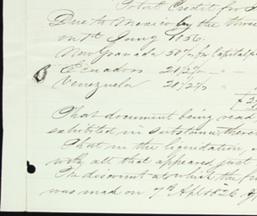 Total Credit for
Due to Mexico by the three
on 1st Jany 1856.
New Granada 50 p% for Capital
Ecuador 21½%
Venezuela 28½%
That document being read
exhibited in substance there
That in the liquidation,
with all that appeared just
The discount at which the
was made on 7th Apl 1826.